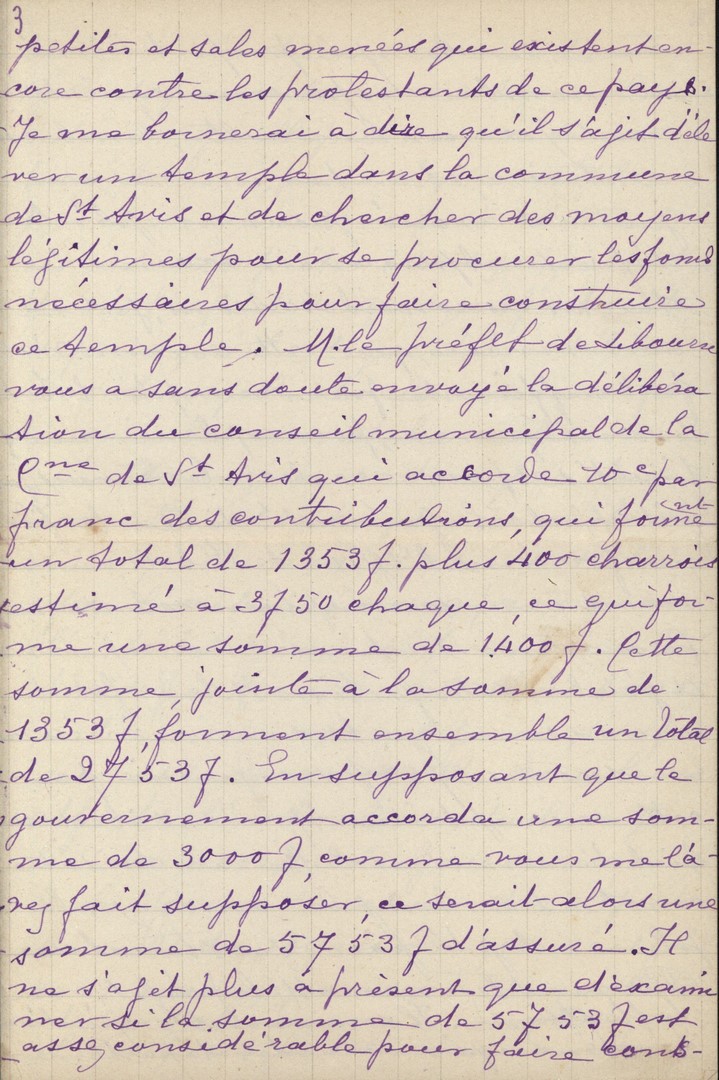 3
petites et sales menées qui existent en-
core contre les protestants de ce pays.
Je me bornerai à dire qu'il s'agit d'éle
ver un temple dans la commune
de St Avis et de chercher des moyens
légitimes pour se procurer les fonds
nécessaires pour faire construire
ce temple. M. le préfet de Libourne
vous a sans doute envoyé la délibéra
tion du conseil municipal de la
Cne de St Avis qui accorde 10 c par
franc des contributions, qui forment
un total de 1353 f. plus 400 charrois
estimé à 3f50 chaque, ce qui for-
me une somme de 1400 f. Cette
somme, jointe à la somme de
1353 f, forment ensemble un total
de 2753 f. En supposant que le
gouvernement accorda une som-
me de 3000 f, comme vous me l'a-
vez fait supposer, ce serait alors une
somme de 5753 f d'assuré. Il
ne s'agit plus à présent que d'exami
ner si la somme de 5753 f est
assez considérable pour faire cons-